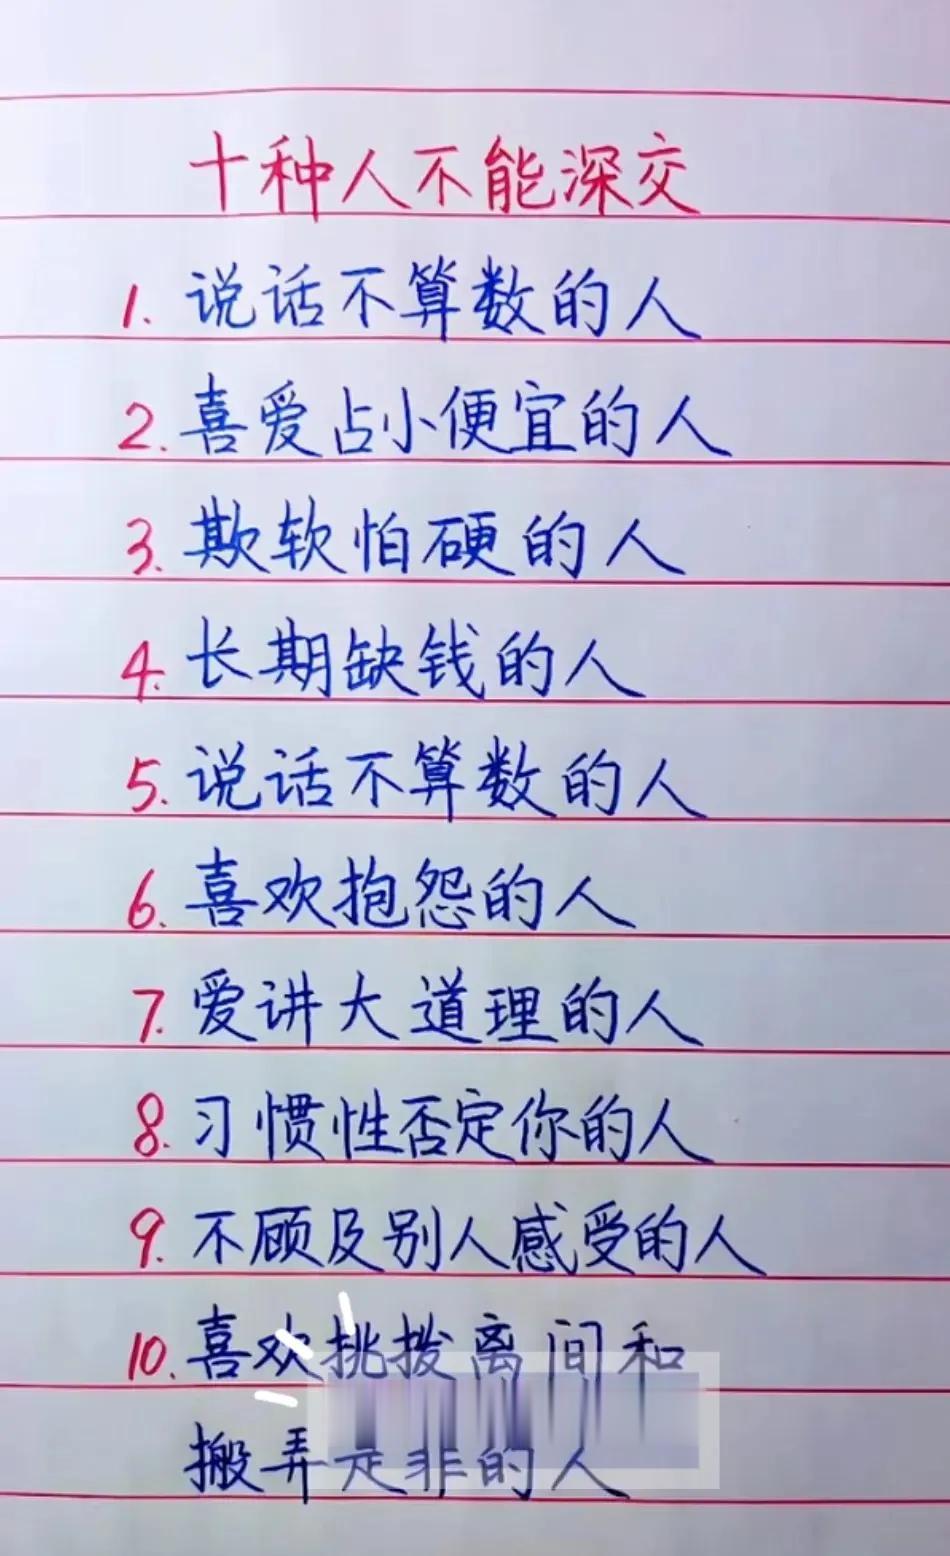 十种人不能深交
1. 说话不算数的人
2. 喜爱占小便宜的人
3. 欺软怕硬的人
4. 长期缺钱的人
5. 说话不算数的人
6. 喜欢抱怨的人
7. 爱讲大道理的人
8. 习惯性否定你的人
9. 不顾及别人感受的人
10. 喜欢挑拨离间和
搬弄是非的人